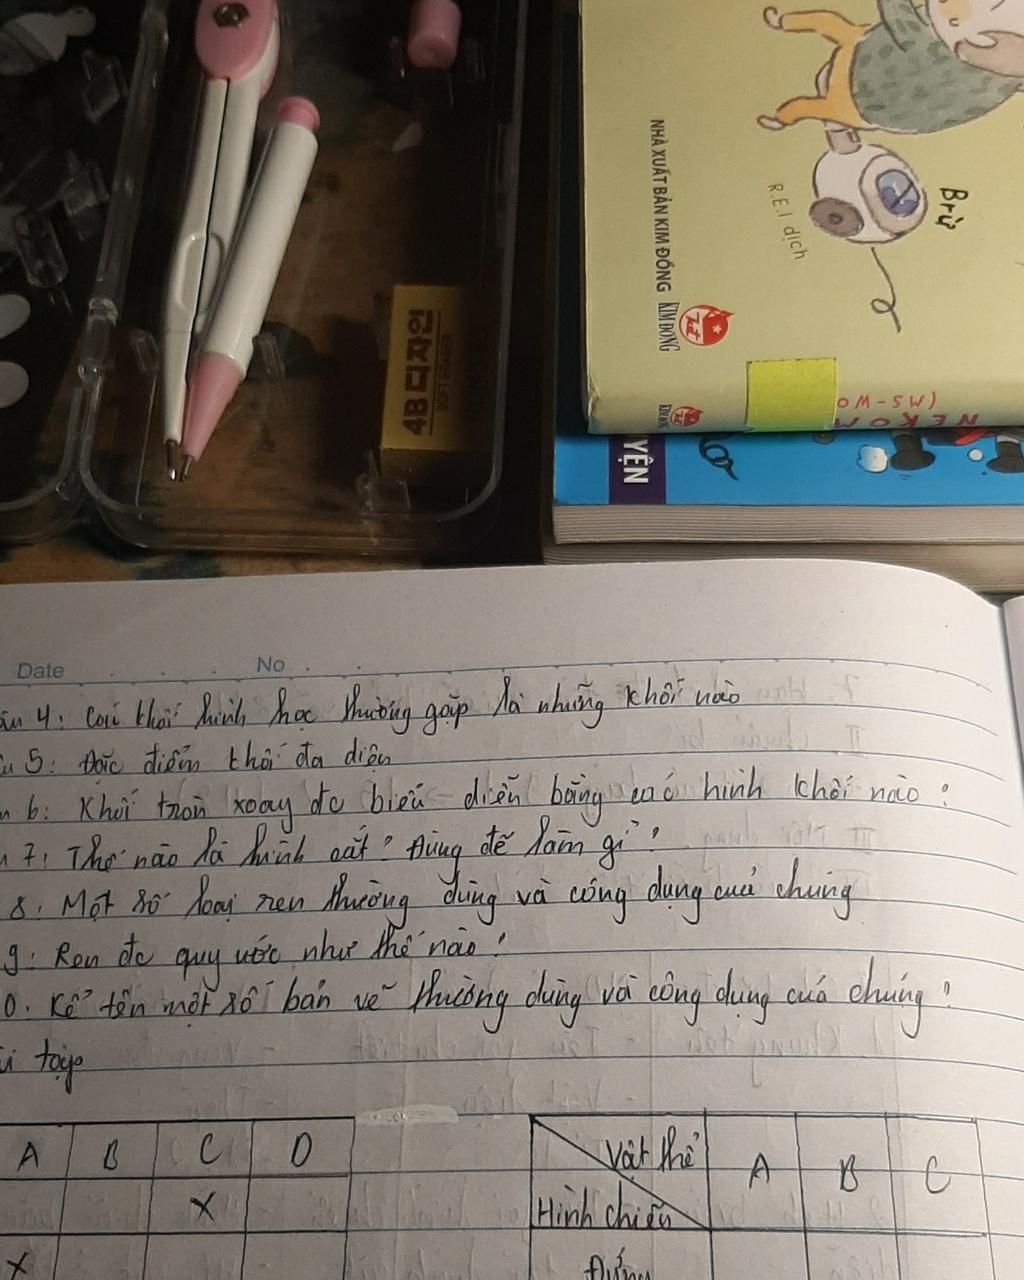 4B 디자인
SOFT ERASER
NHÀ XUẤT BẢN KIM ĐỒNG
KIM ĐỒNG
R.E.I dịch
Brừ
(MS-WO
NEKOM
YỆN
Date No
4: Các khối hình học thường gặp là những khối nào
5: Đặc điểm khối đa diện
6: Khối tròn xoay đc biểu diễn bằng các hình khối nào?
7: Thế nào là hình cắt? Dùng để làm gì?
8: Một số loại ren thường dùng và công dụng của chúng
9: Ren đc quy ước như thế nào?
0. Kể tên một số bản vẽ thường dùng và công dụng của chúng?
tập
A B C D
X
X
Vật thể A B C
Hình chiếu
Đứng